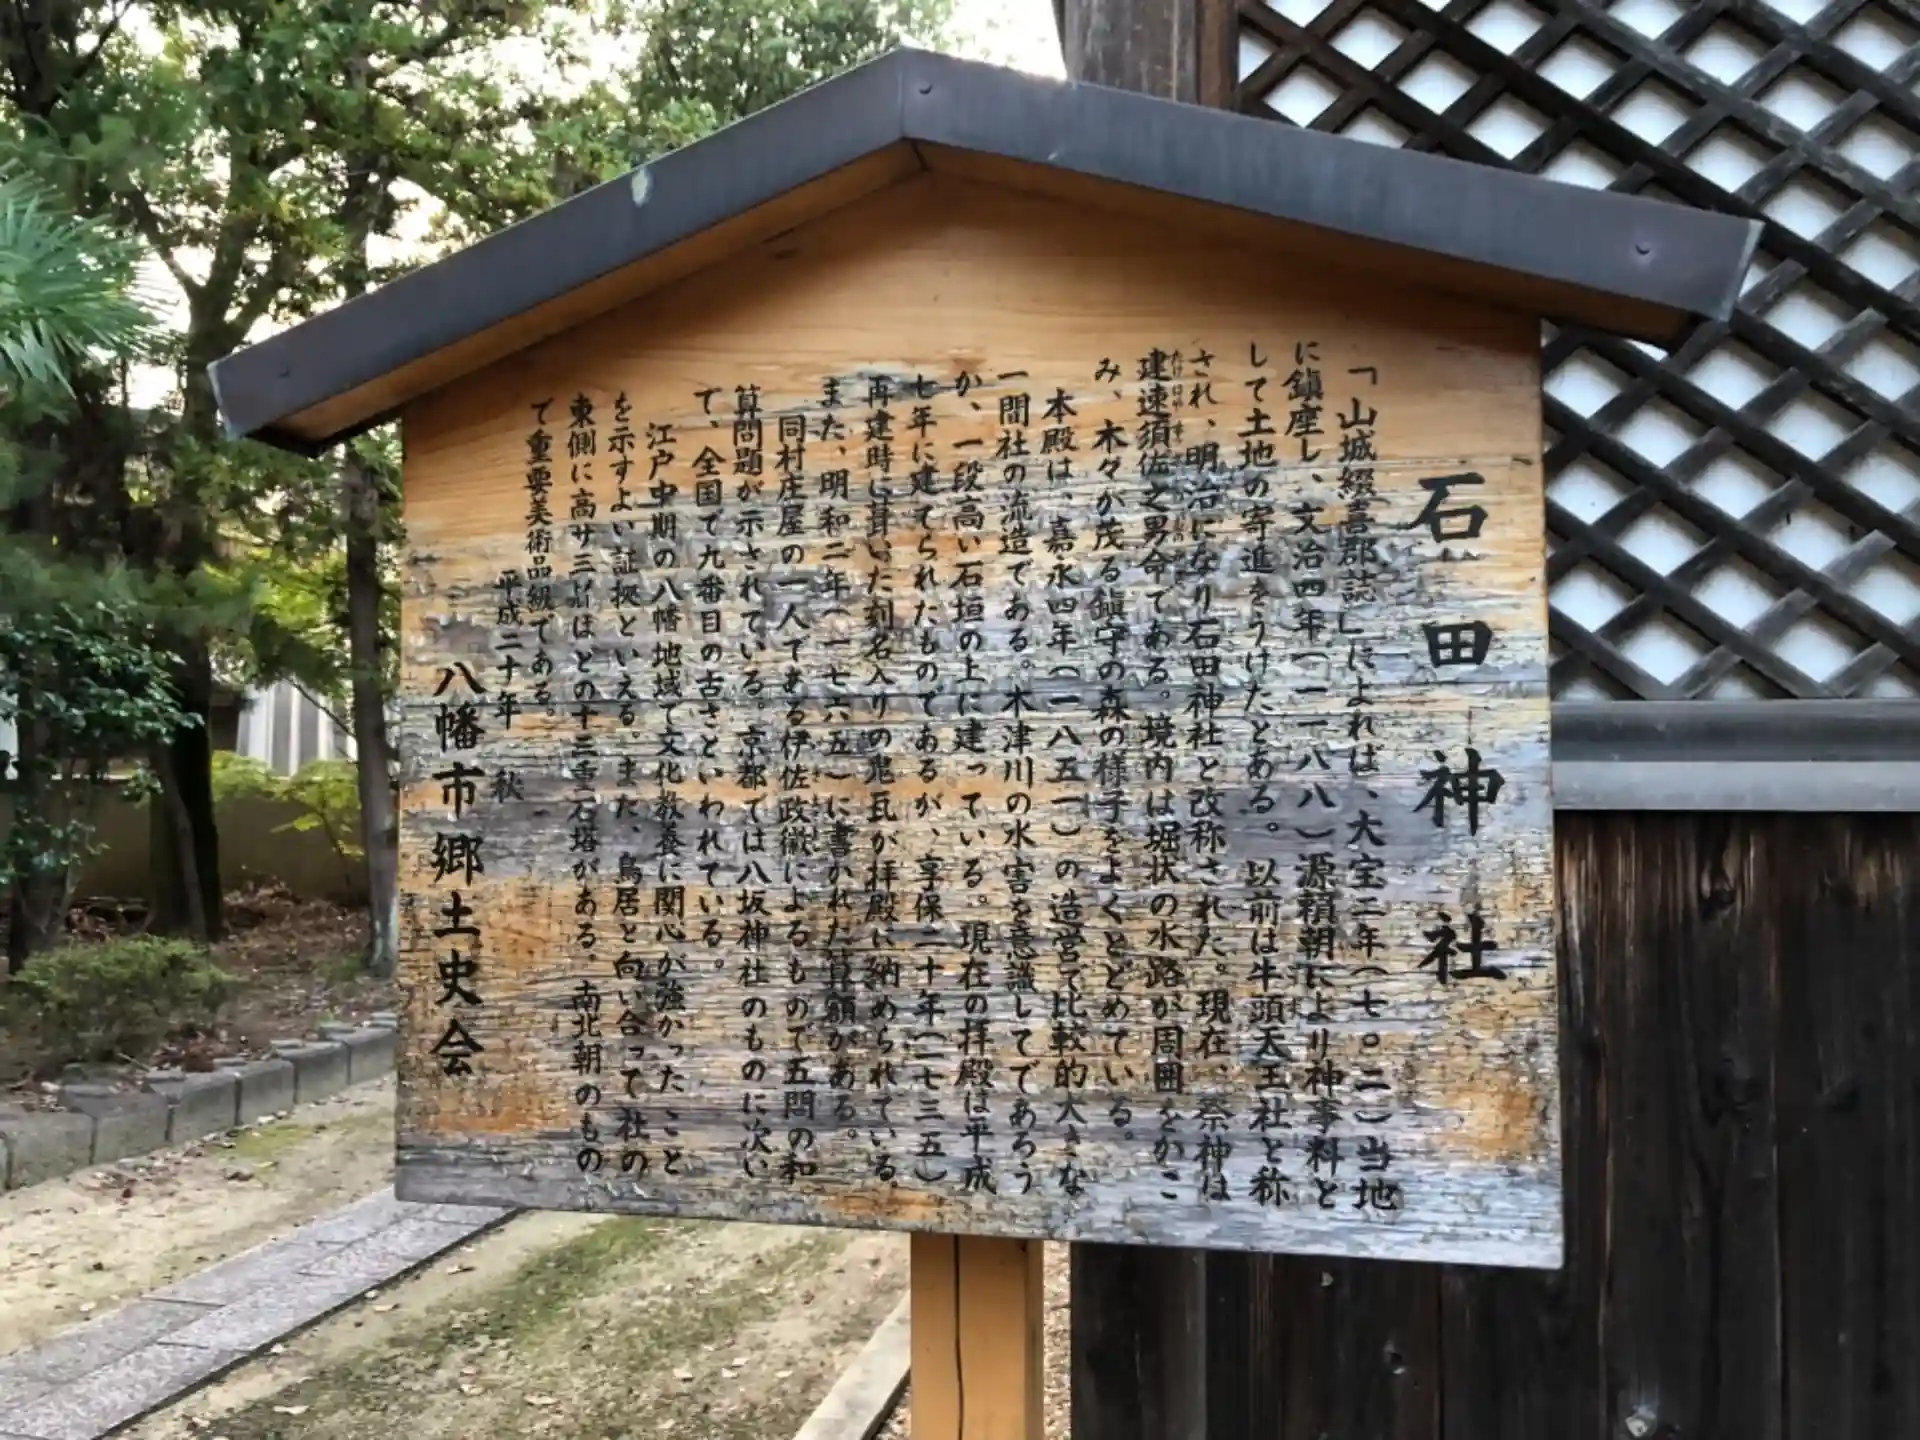 石田神社
「山城綴喜郡誌」によれば、大宝二年(七〇二)当地
に鎮座し、文治四年(一一八八)源頼朝により神事料と
して土地の寄進をうけたとある。以前は牛頭天王社と称
され、明治になり石田神社と改称された。現在、祭神は
建速須佐之男命である。境内は堀状の水路が周囲をかこ
み、木々が茂る鎮守の森の様子をよくとどめている。
本殿は、嘉永四年(一八五一)の造営で比較的大きな
一間社の流造である。木津川の水害を意識してであろう
か、一段高い石垣の上に建っている。現在の拝殿は平成
七年に建てられたものであるが、享保二十年(一七三五)
再建時に葺いた刻名入りの鬼瓦が拝殿に納められている。
また、明和二年(一七六五)に書かれた算額がある。
同村庄屋の一人である伊佐政徵によるもので五問の和
算問題が示されている。京都では八坂神社のものに次い
て、全国で九番目の古さといわれている。
江戸中期の八幡地域で文化教養に関心が強かったこと
を示すよい証拠といえる。また、鳥居と向い合って社の
東側に高サ三㍍ほどの十三重石塔がある。南北朝のもの
で重要美術品級である。
平成二十年 秋
八幡市郷土史会